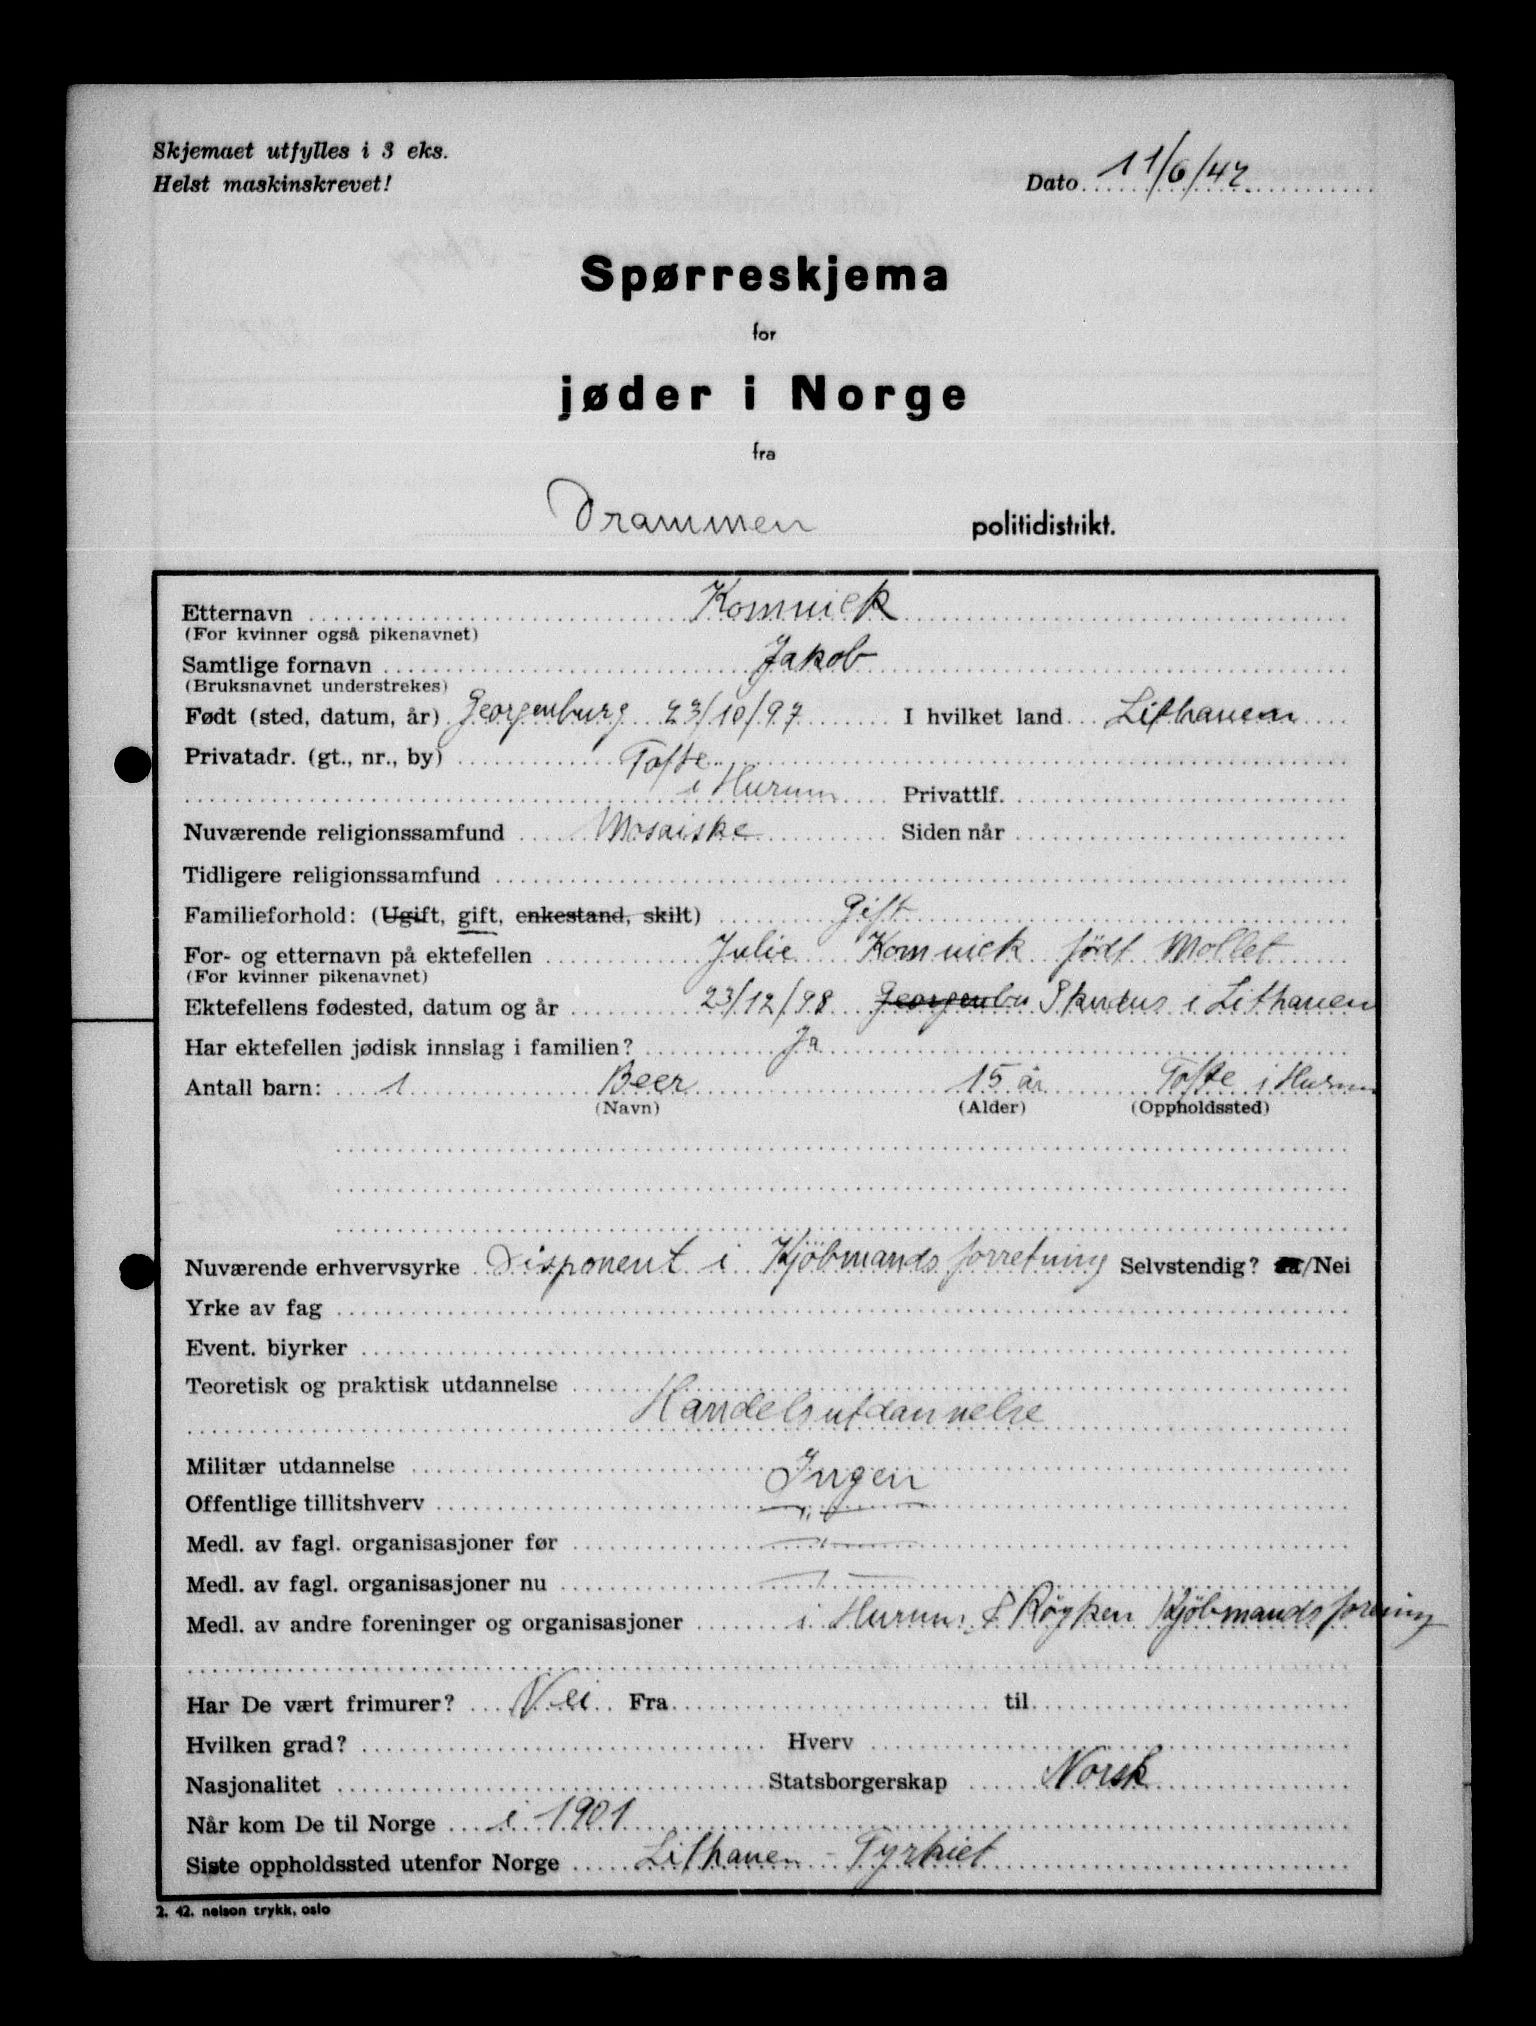 Skjemaet utfylles i 3 eks.
Helst maskinskrevet!
Dato 11/6/42
Spørreskjema
for
jøder i Norge
fra
Drammen politidistrikt.
Etternavn Komnick
(For kvinner også pikenavnet)
Samtlige fornavn Jakob
(Bruksnavnet understrekes)
Født (sted, datum, år) Georgenburg 23/10/97 I hvilket land Lithauen
Privatadr. (gt., nr., by) Tofte
i Hurum Privattlf.
Nuværende religionssamfund Mosaiske Siden når
Tidligere religionssamfund
Familieforhold: (Ugift, gift, enkestand, skilt) Gift
For- og etternavn på ektefellen Julie Komnick født Mollet
(For kvinner pikenavnet)
Ektefellens fødested, datum og år 23/12/98 Georgenbu i Lithauen
Har ektefellen jødisk innslag i familien? Ja
Antall barn: 1 Beer 15 år Tofte i Hurum
(Navn) (Alder) (Oppholdssted)
Nuværende erhvervsyrke Disponent i Kjöbmandsforretning Selvstendig? Ja/Nei
Yrke av fag
Event. biyrker
Teoretisk og praktisk utdannelse
Handelsutdannelse
Militær utdannelse Ingen
Offentlige tillitshverv — " —
Medl. av fagl. organisasjoner før — " —
Medl. av fagl. organisasjoner nu — " —
Medl. av andre foreninger og organisasjoner i Hurum & Røyken Kjöbmandsforening
Har De vært frimurer? Nei Fra til
Hvilken grad? Hverv
Nasjonalitet Statsborgerskap Norsk
Når kom De til Norge i 1901
Siste oppholdssted utenfor Norge Lithauen - Tyrkiet
2. 42. nelson trykk, oslo